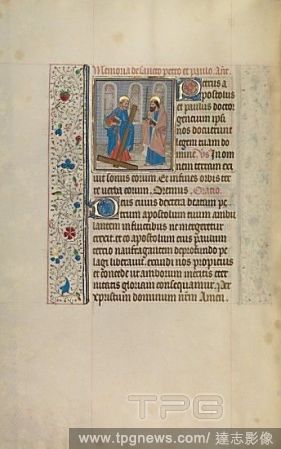 Memoria de sancto petro et paulo. Ant.
Petrus a
postolus
et paulus doctor
gencium ipsi
nos docuerunt
legem tuam do
mine. Vs In om
nem terram exi
uit sonus eorum. Et in fines orbis ter
re verba eorum. Oremus. Oratio.
Deus cuius dextera beatum pe
trum apostolum tuum ambu
lantem in fluctibus ne mergeretur
erexit. et co apostolum eius paulum
tercio naufragantem de profundo pe
lagi liberauit. exaudi nos propicius
et concede ut amborum meritis eter
nitatis gloriam consequamur. Per
xpristum dominum nrm Amen.
TPG
www.tpgnews.com/ 達志影像